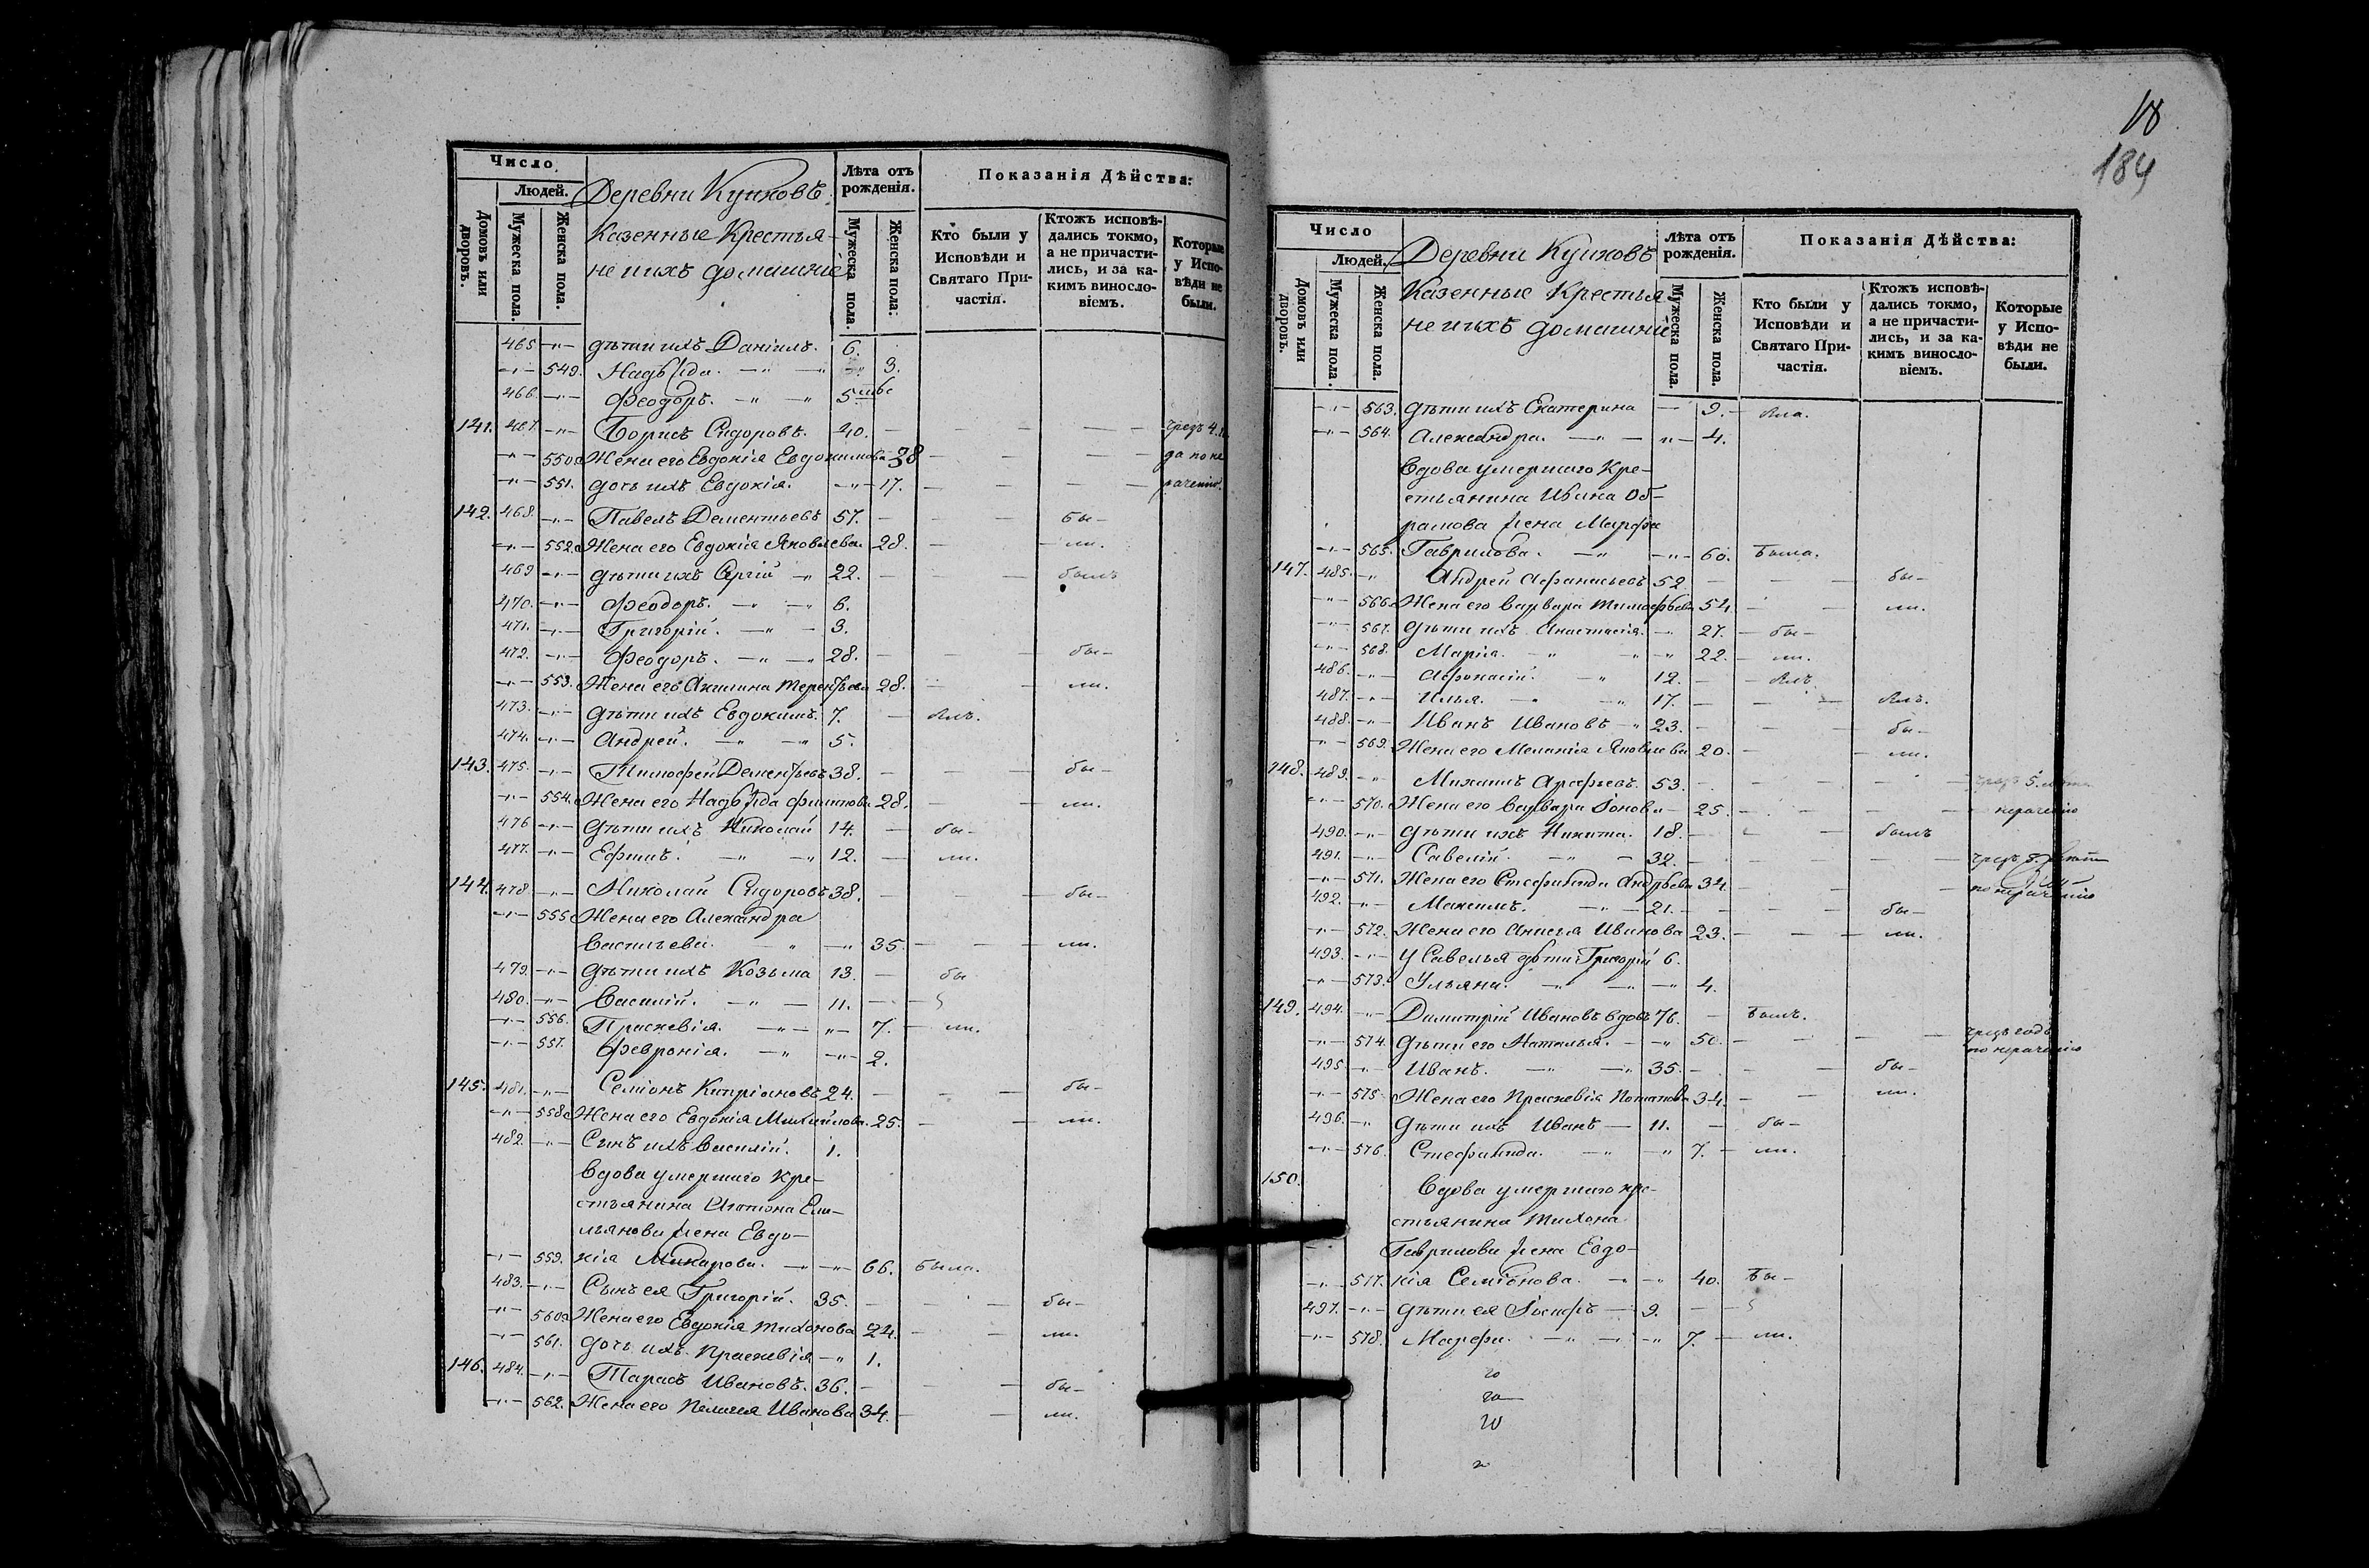 Число
Людей.
Домовъ или дворовъ.
Мужеска пола.
Женска пола.
Деревни
Казенные Крестья-
не и ихъ домашніе
Лѣта отъ рожденія.
Мужеска пола.
Женска пола.
Показанія Дѣйства:
Кто были у Исповѣди и Святаго Причастія.
Ктожъ исповѣдались токмо, а не причастились, и за какимъ винословіемъ.
Которые у Исповѣди не были.
465 -"- дѣти ихъ Даніилъ. 6.
-"- 549. Надѣжда. -"- 3.
466. -"- Ѳеодоръ. -"- 5
141. 467. -"- Борисъ Сидоровъ. 40. чрезъ 4.
-"- 550. Жена его Евдокія Евдокимова 38
-"- 551. дочь ихъ Евдокія. -"- 17.
142. 468. -"- Павелъ Дементьевъ 57. бы-
-"- 552. Жена его Евдокія Яковлева. 28. ли.
469 -"- дѣти ихъ Сергій -"- 22. былъ
470. -"- Ѳеодоръ. -"- 6.
471. -"- Григорій. -"- 3.
472. -"- Ѳеодоръ. -"- 28. бы-
-"- 553. Жена его Акилина Терентьева 28. ли.
473. -"- дѣти ихъ Евдокимъ. 7. былъ.
474. -"- Андрей. -"- 5.
143. 475. -"- Тимофей Дементьевъ 38. бы-
-"- 554. Жена его Надѣжда Филипова 28. ли.
476 -"- дѣти ихъ Николай 14. бы-
477. -"- Ефимъ. -"- 12. ли.
144. 478. -"- Николай Сидоровъ 38. бы-
-"- 555. Жена его Александра
Васильева. -"- 35. ли.
479. -"- дѣти ихъ Козьма 13. бы
480. -"- Василій. -"- 11.
-"- 556. Праскевія. -"- 7. ли.
-"- 557. Февронія. -"- 2.
145. 481. -"- Семіонъ Кипріановъ 24. бы-
-"- 558. Жена его Евдокія Михайлова. 25. ли.
482. -"- Сынъ ихъ Василій. 1.
Вдова умершаго Кре-
стьянина Антона Еме-
льянова жена Евдо-
-"- 559. кія Макарова. -"- 66. была.
483. -"- Сынъ ея Григорій. 35. бы-
-"- 560. Жена его Евдокія Тихонова 24. ли.
-"- 561. дочь ихъ Праскевія -"- 1.
146. 484. -"- Тарасъ Ивановъ. 36. бы-
-"- 562. Жена его Пелагея Иванова 34. ли.
184
Число
Людей.
Домовъ или дворовъ.
Мужеска пола.
Женска пола.
Деревни
Казенные Крестья-
не и ихъ домашніе
Лѣта отъ рожденія.
Мужеска пола.
Женска пола.
Показанія Дѣйства:
Кто были у Исповѣди и Святаго Причастія.
Ктожъ исповѣдались токмо, а не причастились, и за какимъ винословіемъ.
Которые у Исповѣди не были.
-"- 563. дѣти ихъ Екатерина - 9. была.
-"- 564. Александра. -"- 4.
Вдова умершаго Кре-
стьянина Ивана Об-
рамова жена Марфа
-"- 565. Гаврилова. -"- 60. была.
147. 485. -"- Андрей Афанасьевъ 52 бы-
-"- 566. Жена его Варвара Тимофѣева 54. ли.
-"- 567. дѣти ихъ Анастасія. -"- 27. бы-
-"- 568. Марія. -"- 22. ли.
486. -"- Афонасій. -"- 12. былъ
487. -"- Илья. -"- 17. былъ.
488. -"- Иванъ Ивановъ -"- 23. бы-
-"- 569. Жена его Меланія Яковлева 20. ли.
148. 489. -"- Михаилъ Арефьевъ. 53. чрезъ 5.
-"- 570. Жена его Варвара Іонова 25. нераченію
490. -"- дѣти ихъ Никита. 18. былъ
491. -"- Савелій. -"- 32. чрезъ
-"- 571. Жена его Стефанида Андрѣева 34. по нераченію
492. -"- Максимъ. -"- 21. бы-
-"- 572. Жена его Анисія Иванова 23. ли.
493. -"- у Савелья дѣти Григорій 6.
-"- 573. Ульяна. -"- 4.
149. 494. -"- Димитрій Ивановъ вдовъ 76. былъ.
-"- 574. дѣти его Наталья. -"- 50. чрезъ годъ по нераченію
495 -"- Иванъ. -"- 35. бы-
-"- 575. Жена его Праскевія Потапова 34. ли.
496. -"- дѣти ихъ Иванъ - 11. бы-
-"- 576. Стефанида. -"- 7. ли.
150. Вдова умершаго кре-
стьянина Тихона
Гаврилова жена Евдо-
-"- 577. кія Семіонова. -"- 40. Бы-
497. -"- дѣти ея Іосифъ - 9.
-"- 578. Марфа. -"- 7. ли.